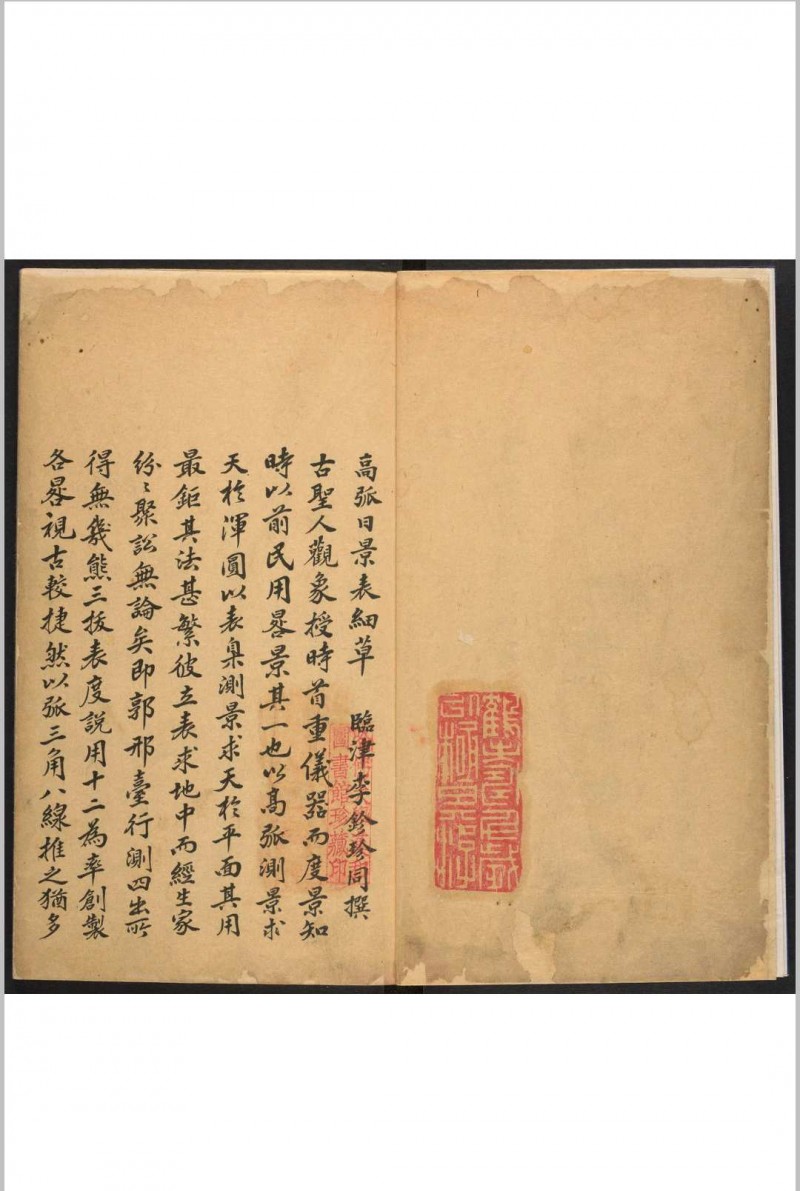 高弧日景表細草　臨津李鉁珍同撰
古聖人觀象授時首重儀器而度景知
時以前民用晷景其一也以高弧測景求
天於渾圓以表臬測景求天於平面其用
最鉅其法甚繁彼立表求地中而經生家
紛〻聚訟無論矣即郭邢臺行測四出所
得無幾熊三拔表度說用十二為率創製
各晷視古較捷然以弧三角八線推之猶多
圖書館珍藏印